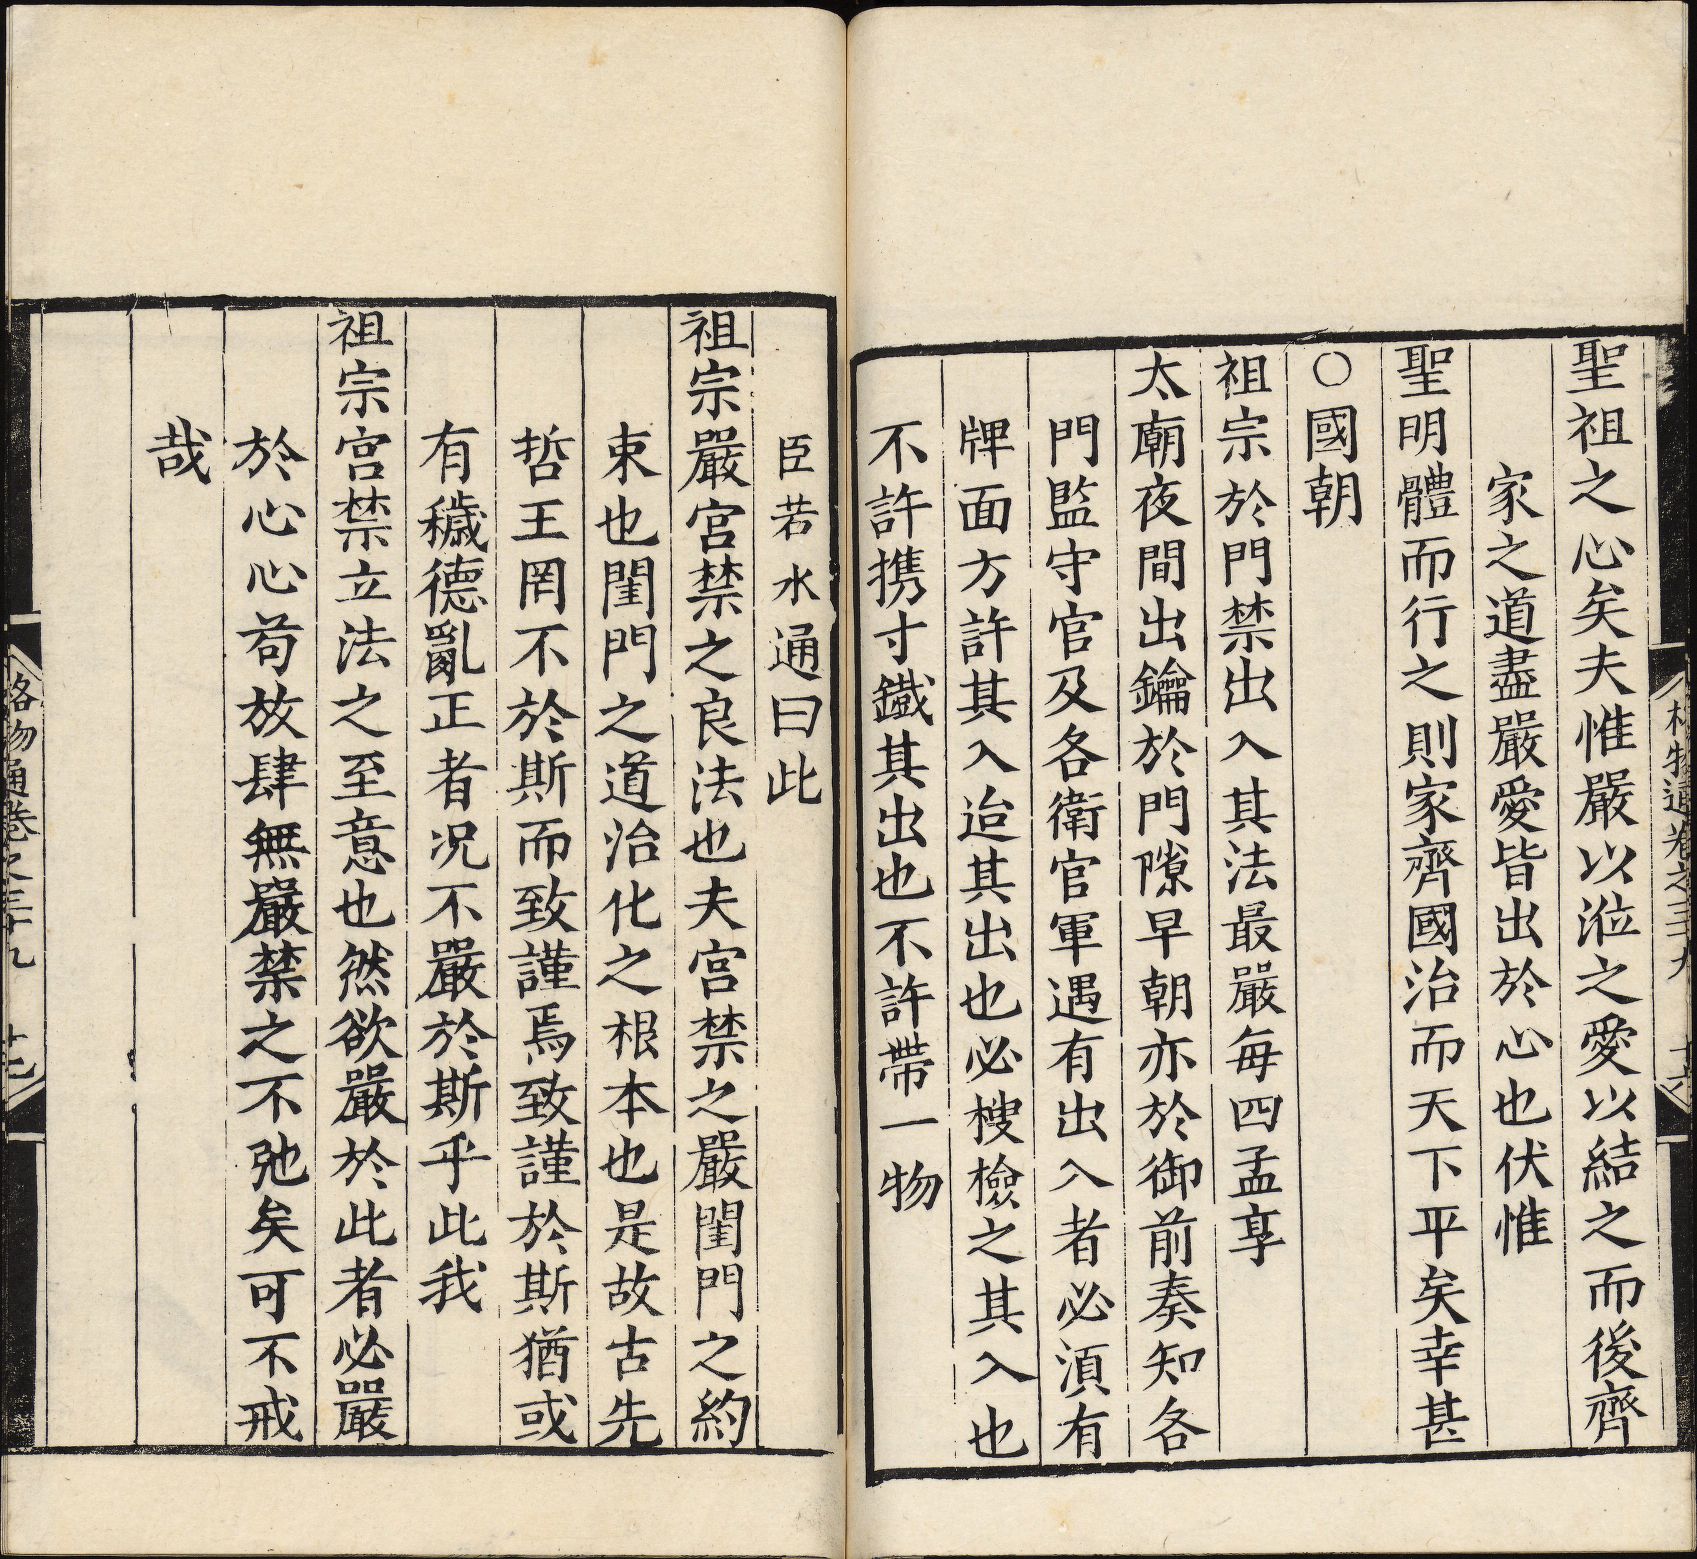 聖祖之心矣夫惟嚴以涖之愛以結之而後齊
家之道盡嚴愛皆出於心也伏惟
聖明體而行之則家齊國治而天下平矣幸甚
○國朝
祖宗於門禁出入其法最嚴每四孟享
太廟夜間出鑰於門隙早朝亦於御前奏知各
門監守官及各衛官軍遇有出入者必湏有
牌面方許其入迨其出也必搜檢之其入也
不許携寸鐵其出也不許帶一物
臣若水通曰此
祖宗嚴宮禁之良法也夫宮禁之嚴閨門之約
束也閨門之道治化之根本也是故古先
哲王罔不於斯而致謹焉致謹於斯猶或
有穢德亂正者况不嚴於斯乎此我
祖宗宮禁立法之至意也然欲嚴於此者必嚴
於心心苟放肆無嚴禁之不弛矣可不戒
哉
格物通卷之三十九 十七